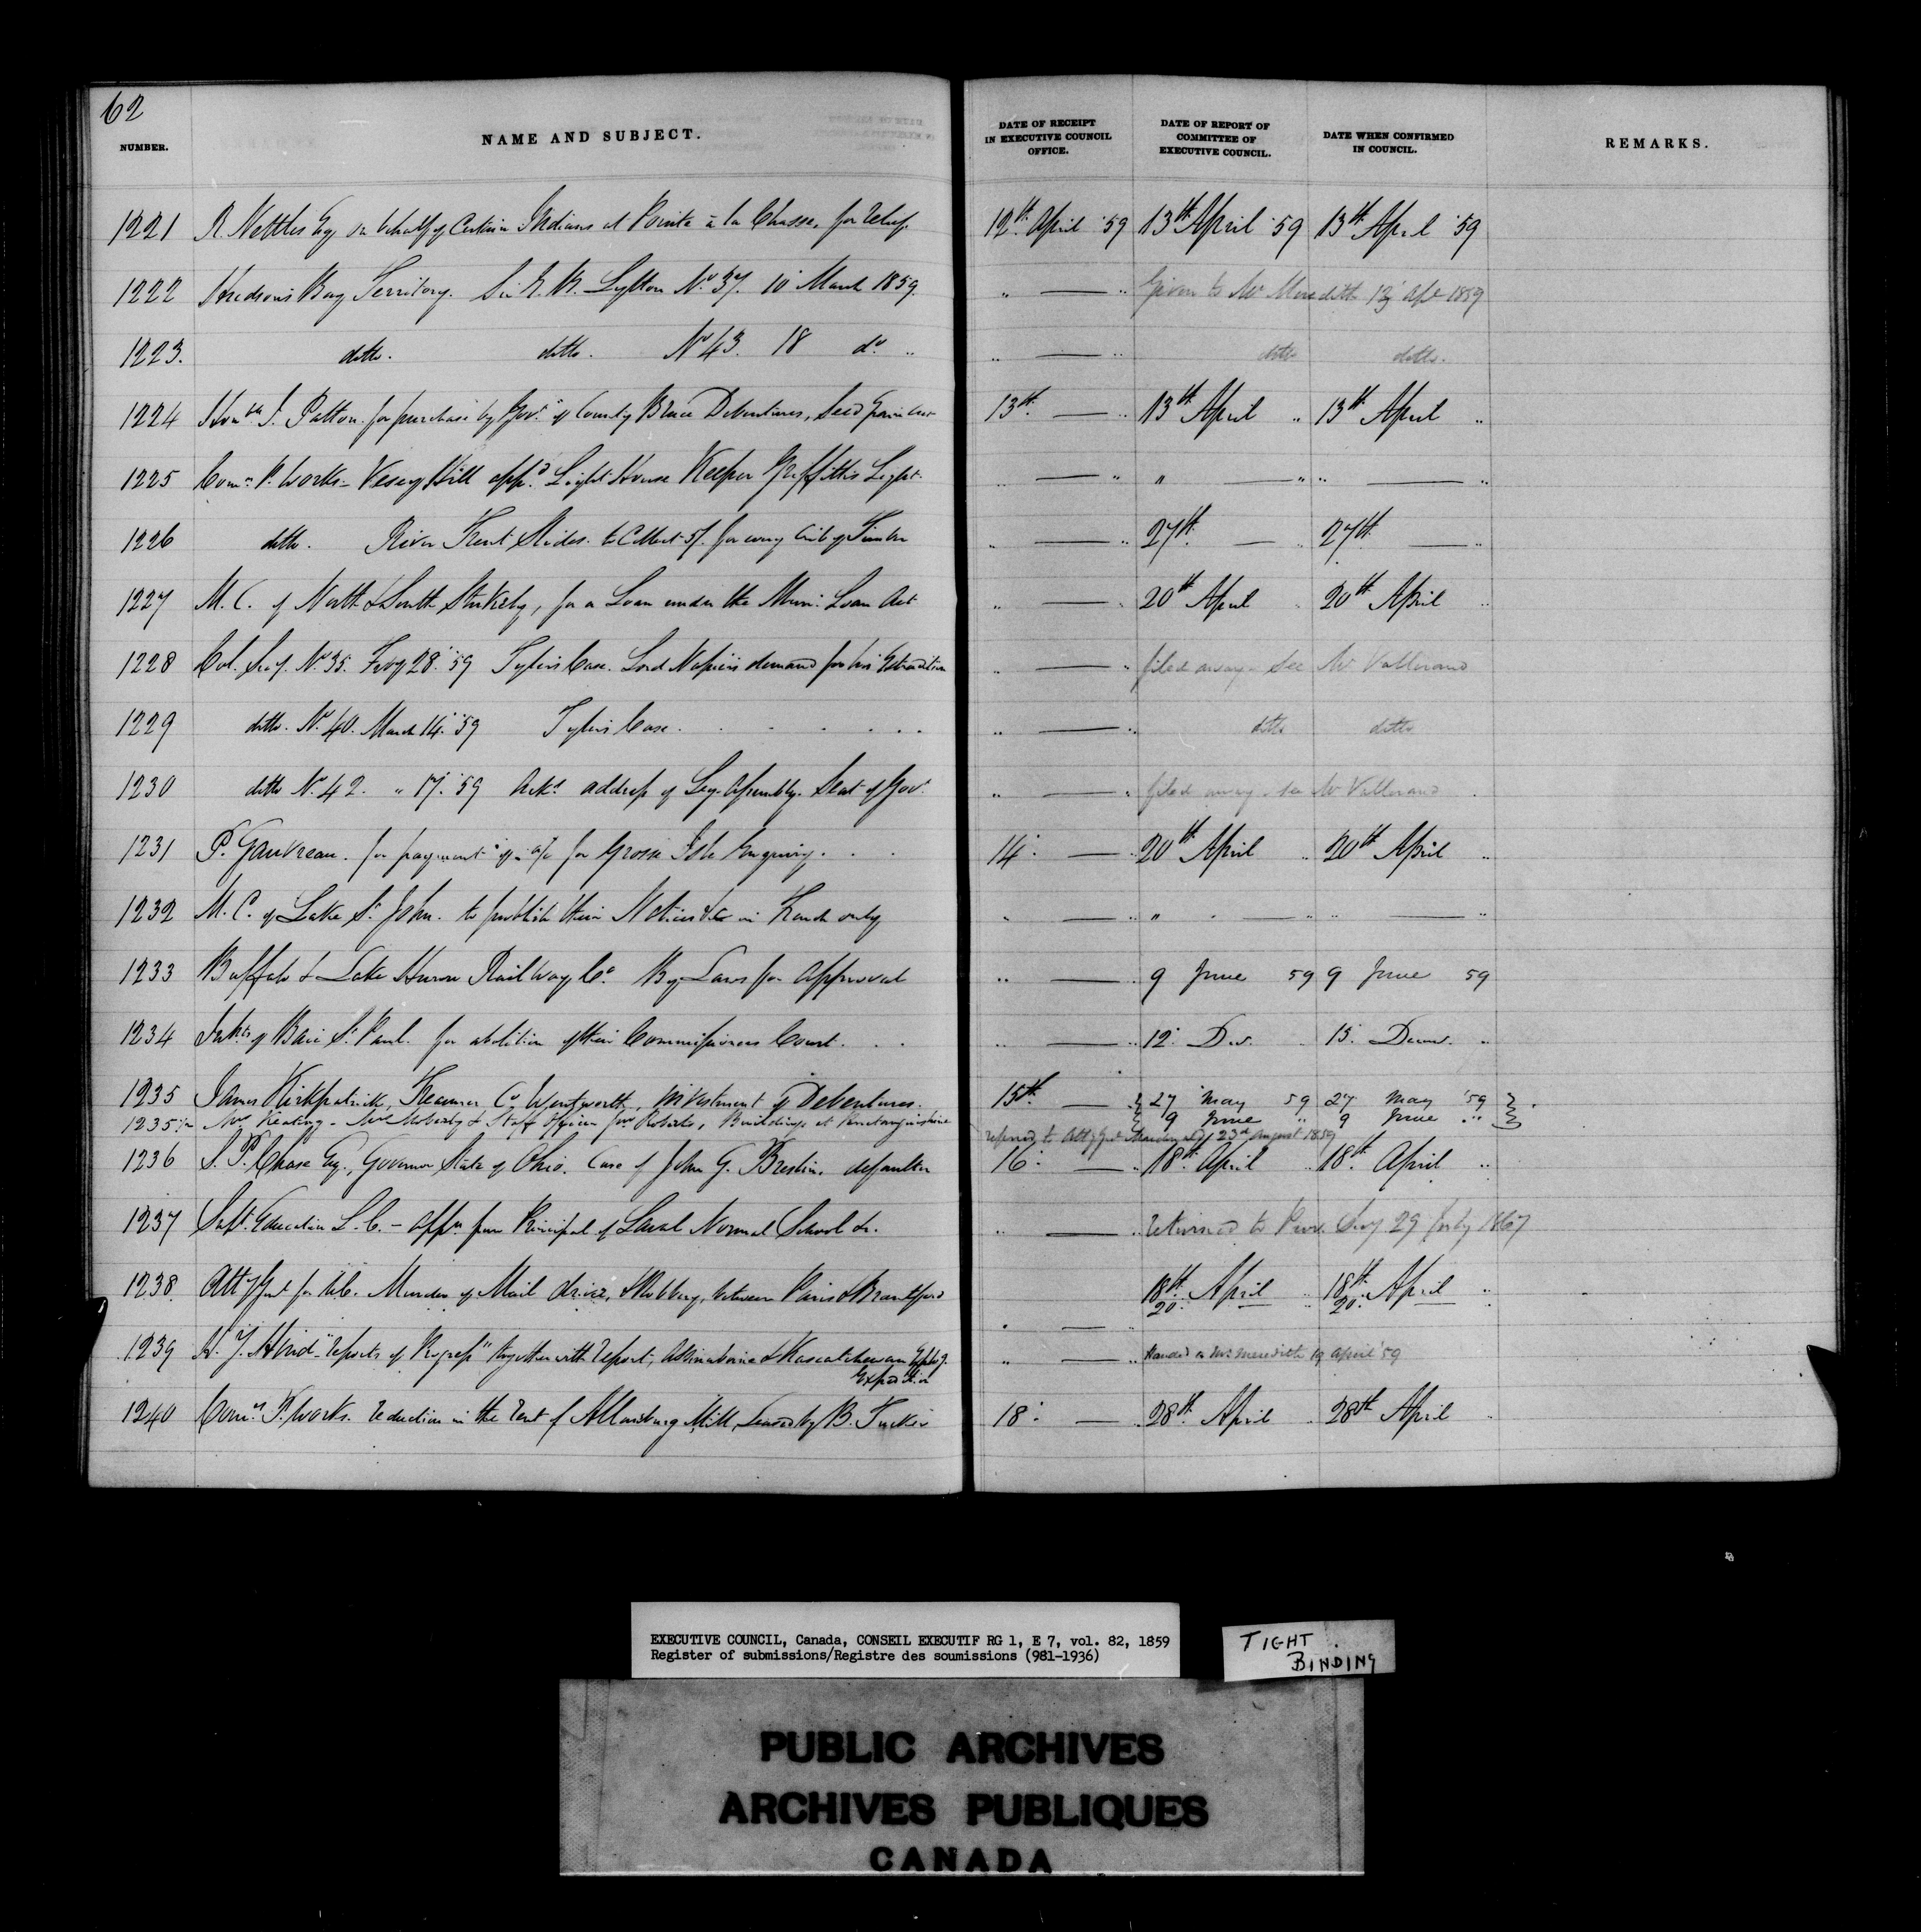 62
NUMBER. NAME AND SUBJECT. DATE OF RECEIPT IN EXECUTIVE COUNCIL OFFICE. DATE OF REPORT OF COMMITTEE OF EXECUTIVE COUNCIL. DATE WHEN CONFIRMED IN COUNCIL. REMARKS.
1221 R. Nettles Esq on behalf of Certain Indians at Pointe à la Chasse, for relief. 12th April '59 13th April '59 13th April '59
1222 Hudson's Bay Territory. Sir E. B. Lytton No. 37. 10 March 1859. " — " Given to Mr Meredith 13 Apl 1859
1223. ditto. ditto. No 43. 18 do. " " — " ditto ditto.
1224 Honble J. Patton for purchase by Govt of County Bruce Debentures, Seed Grain 13th — " 13th April " 13th April "
1225 Comr P. Works – Vesey Hill appd Light House Keeper Griffith's Light. " — " " — " " — "
1226 ditto. River Trent Slides. to Collect 5/. for every Crib of Timber " — " 27th — " 27th — "
1227 M. C. of North & South Stukely, for a Loan under the Muni: Loan Act " — " 20th April " 20th April "
1228 Col. Secy. No 35. Feby 28. '59 Tyler's Case. Lord Napier's demand for his Extradition " — " filed away – See Mr Vallerand
1229 ditto. No 40. March 14. '59 Tyler's Case. " — " ditto ditto
1230 ditto No. 42. " 17. '59 Ackg address of Leg. Assembly. Seat of Govt. " — " filed away – see Mr Vallerand
1231 P. Gauvreau. for payment of a/c for Grosse Isle Enquiry. 14. — " 20th April " 20th April "
1232 M. C. of Lake St John. to publish their Notices &c in French only " — " " — " " — "
1233 Buffalo & Lake Huron Railway Co. By-Laws for Approval " — " 9 June 59 9 June 59
1234 Inhts of Baie St Paul. for abolition of their Commissioners Court. " — " 12. Dec. " 15. Decemr. "
1235 James Kirkpatrick, Treasurer Co Wentworth, investment of Debentures. 15th — " 27 May 59 27 May '59
1235 1/2 Mr Keating – Mrs Moberly & Staff Officer for Roberts, Buildings at Penetanguishine 9 June " 9 June "
referred to Atty Genl 23rd August 1859
1236 S. P. Chase Esq., Governor State of Ohio. Case of John G. Breslin. defaulter 16. — " 18th April " 18th April "
1237 Supt. Education L. C. – from Principal of Laval Normal School &c. " — " returned to Prov. Secy 29 July 1867
1238. Atty Genl for U.C. Murder of Mail driver, & Robbery, between Paris & Brantford " — 18th April " 18th April "
20. 20. "
1239 H. Y. Hind "reports of Progress" together with report, Assiniboine & Saskatchewan Explg. " — " Handed to Mr Meredith 19 April '59
Expedition
1240 Comr P. Works. reduction in the rent of Allanburg Mill, Leased by B. Tucker 18. — " 28th April " 28th April "
EXECUTIVE COUNCIL, Canada, CONSEIL EXECUTIF RG 1, E 7, vol. 82, 1859
Register of submissions/Registre des soumissions (981-1936)
TIGHT
BINDING
PUBLIC ARCHIVES
ARCHIVES PUBLIQUES
CANADA